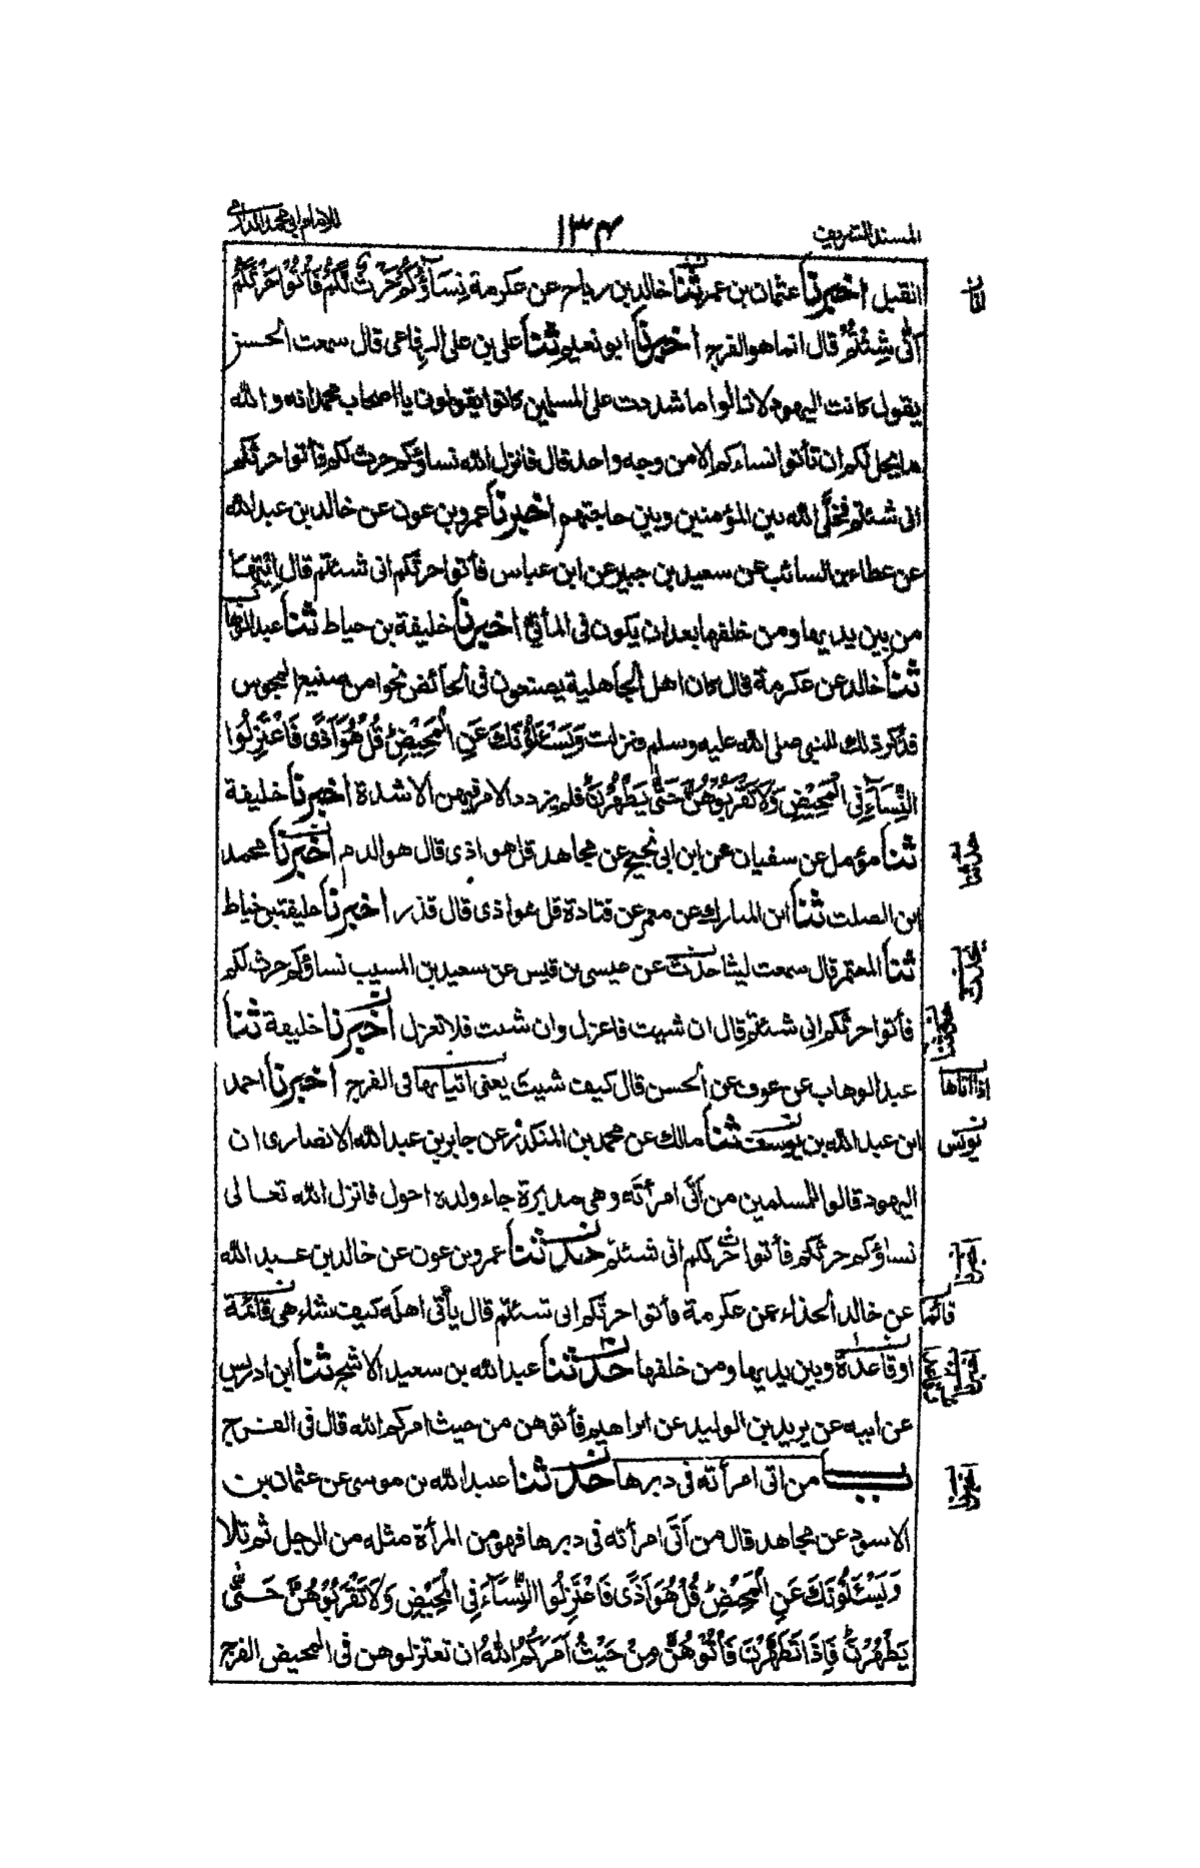 المسند الشريف
١٣٤
للامام ابي محمد الدارمي
القبل اخبرنا عثمان بن عمر ثنا خالد بن رياح عن عكرمة نِسَآؤُكُمْ حَرْثٌ لَّكُمْ فَأْتُوْا حَرْثَكُمْ
اَنّٰى شِئْتُمْ قال انما هو الفرج اخبرنا ابو نعيم ثنا علي بن علي الرفاعي قال سمعت الحسن
يقول كانت اليهود لا تالوا ما شددت على المسلمين كانوا يقولون يا اصحاب محمد انه والله
ما يحل لكم ان تأتوا نساءكم الا من وجه واحد قال فانزل الله نساؤكم حرث لكم فأتوا حرثكم
انى شئتم فخلّى الله بين المؤمنين وبين حاجتهم اخبرنا عمرو بن عون عن خالد بن عبد الله
عن عطاء بن السائب عن سعيد بن جبير عن ابن عباس فأتوا حرثكم انى شئتم قال ائتها
من بين يديها ومن خلفها بعد ان يكون فى المأتى اخبرنا خليفة بن خياط ثنا عبد الوهاب
ثنا خالد عن عكرمة قال كان اهل الجاهلية يصنعون فى الحائض نحوا من صنيع المجوس
فذكر ذلك للنبي صلى الله عليه وسلم فنزلت وَيَسْئَلُوْنَكَ عَنِ الْمَحِيْضِ قُلْ هُوَ اَذًى فَاعْتَزِلُوا
النِّسَآءَ فِى الْمَحِيْضِ وَلَا تَقْرَبُوْهُنَّ حَتّٰى يَطْهُرْنَ فلم يزدد الامر فيهن الا شدة اخبرنا خليفة
ثنا مؤمل عن سفيان عن ابن ابى نجيح عن مجاهد قل هو اذى قال هو الدم اخبرنا محمد
ابن الصلت ثنا ابن المبارك عن معمر عن قتادة قل هو اذى قال قذر اخبرنا خليفة بن خياط
ثنا المعتمر قال سمعت ليثا حدث عن عيسى بن قيس عن سعيد بن المسيب نساؤكم حرث لكم
فأتوا حرثكم انى شئتم قال ان شئت فاعزل وان شئت فلا تعزل اخبرنا خليفة ثنا
عبد الوهاب عن عوف عن الحسن قال كيف شئت يعنى اتيانها فى الفرج اخبرنا احمد
ابن عبد الله بن يوسف ثنا مالك عن محمد بن المنكدر عن جابر بن عبد الله الانصارى ان
اليهود قالوا للمسلمين من اَتى امرأته وهى مدبرة جاء ولده احول فانزل الله تعالى
نساؤكم حرثكم فأتوا حرثكم انى شئتم حدثنا عمرو بن عون عن خالد بن عبد الله
عن خالد الحذاء عن عكرمة فأتوا حرثكم انى شئتم قال يأتى اهله كيف شاء هى قائمة
او قاعدة وبين يديها ومن خلفها حدثنا عبد الله بن سعيد الاشج ثنا ابن ادريس
عن ابيه عن يزيد بن الوليد عن ابراهيم فأتوهن من حيث امركم الله قال فى الفرج
باب من اتى امرأته فى دبرها حدثنا عبد الله بن موسى عن عثمان بن
الاسود عن مجاهد قال من اَتَى امرأته فى دبرها فهو من المرأة مثله من الرجل ثم تلا
وَيَسْئَلُوْنَكَ عَنِ الْمَحِيْضِ قُلْ هُوَ اَذًى فَاعْتَزِلُوا النِّسَآءَ فِى الْمَحِيْضِ وَلَا تَقْرَبُوْهُنَّ حَتّٰى
يَطْهُرْنَ فَاِذَا تَطَهَّرْنَ فَأْتُوْهُنَّ مِنْ حَيْثُ اَمَرَكُمُ اللّٰهُ ان تعتزلوهن فى المحيض الفرج
حدثنا
يحدث
حدثنا
اذا اتاها
يونس
اخبرنا
قائما
اخبرنا